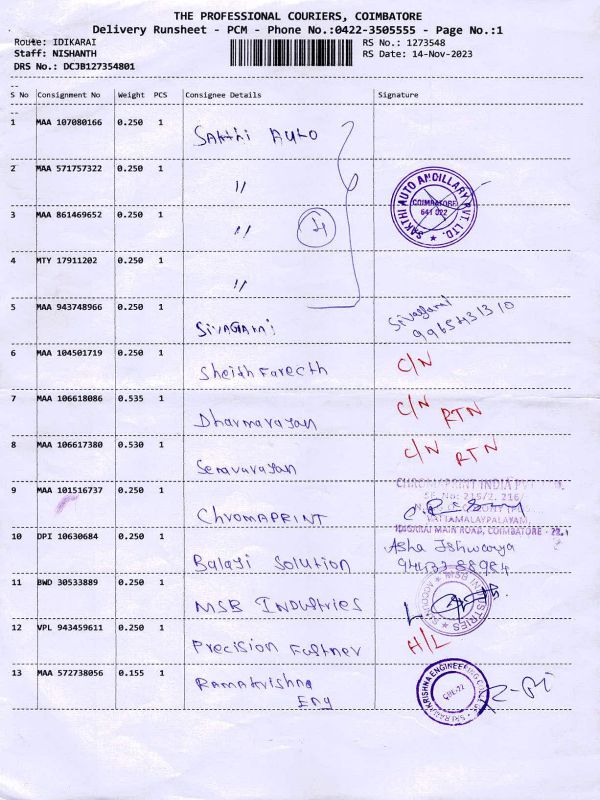 THE PROFESSIONAL COURIERS, COIMBATORE
Delivery Runsheet - PCM - Phone No.:0422-3505555 - Page No.:1
Route: IDIKARAI RS No.: 1273548
Staff: NISHANTH RS Date: 14-Nov-2023
DRS No.: DCJB127354801
S No Consignment No Weight PCS Consignee Details Signature
1 MAA 107080166 0.250 1 Sakthi Auto
2 MAA 571757322 0.250 1 "
SAKTHI AUTO ANCILLARY PVT. LTD.
COIMBATORE
641 022
3 MAA 861469652 0.250 1 " 4
4 MTY 17911202 0.250 1 "
5 MAA 943748966 0.250 1 SIVAGAMI Sivagami
9965431310
6 MAA 104501719 0.250 1 Sheikh Fareeth C/N
7 MAA 106618086 0.535 1 Dharmarayan C/N RTN
8 MAA 106617380 0.530 1 Seravarayan C/N RTN
9 MAA 101516737 0.250 1 CHROMAPRINT
CHROMAPRINT INDIA PVT
SF. No: 215/2, 216/
VATTAMALAYPALAYAM,
IDIGARAI MAIN ROAD, COIMBATORE - 22.
10 DPI 10630684 0.250 1 Balaji Solution Asha Ishwarya
11 BWD 30533889 0.250 1 MSB Industries
MSB INDUSTRIES
12 VPL 943459611 0.250 1 Precision Fastner H/L
13 MAA 572738056 0.155 1 Ramakrishna
Eng
SRI RAMAKRISHNA ENGINEERING COLLEGE
CBE-22